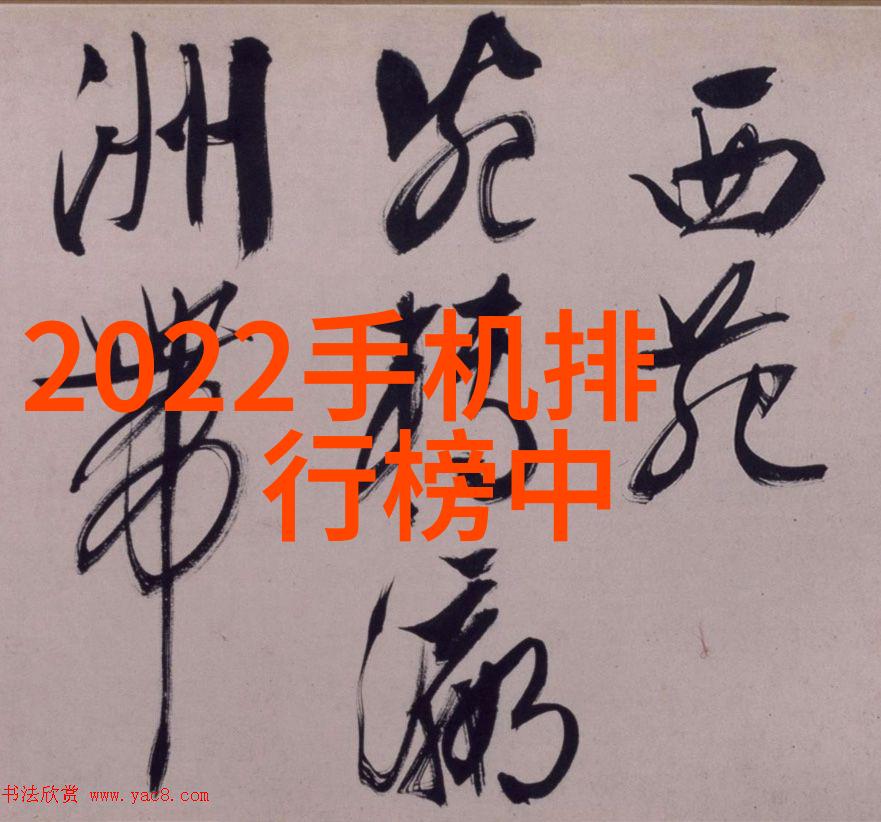 西苑
宛轉瀛
洲帶
2022手机排
行榜中
书法欣赏 www.yac8.com